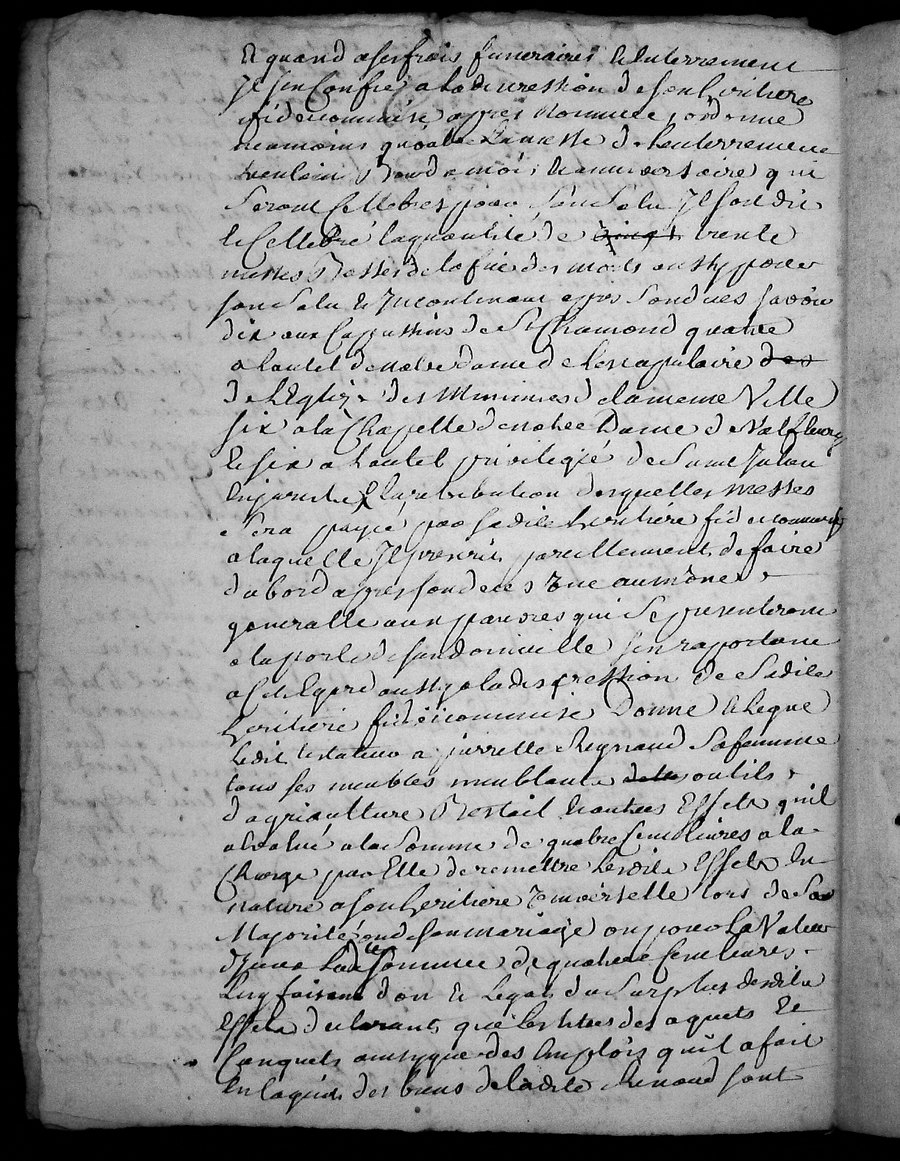 Et quand a ses frais funeraires et enterrement
Il s'en Confie a la discression de son heritiere
fideicommise appres nommee, ordonne
neamoins qu'outre la messe de l'enterrement
trentain Bout de mois, et anniversaire qui
seront Cellebres pour son salu Il soit dit
et Cellebré la quantité de vingt trente
messes Basses de la fue des morts aussy pour
son salu et Incontinant appres son deces savoir
dix aux Cappussins de St Chamond quatre
a lautel de notre dame de lescapulaire des
de l'Eglize des Minimes de la meme Ville
six a la Chapelle de notre Dame de Valfleury
Et six a lautel privilegié de Saint Julien
En jarest Et la retribution desquelles messes
sera payée par sadite heritiere fideicommise
a laquelle Il prescrit pareillement de faire
dabord appres son deces Une aumône
generalle aux pauvres qui se presenteront
a la porte de son domicille s'en raportant
a Cet Egard aussy a la discression de sadite
heritiere fideicommise Donne et legue
ledit testateur a pierrette Regnaud sa femme
tous ses meubles meublants outils
d'agriculture Bestail et autres Effets qu'il
a Evalué a la somme de quatre Cent livres a la
Charge par Elle de remettre lesdits Effets En
nature a son heritiere Universelle lors de sa
Majorité ou de son mariage ou pour la Valeur
d'yceux ladte somme de quatre Cent livres
luy faisant don et legat du surplus desdits
Effets declarant que les titres des aquets Et
Conquets aussy que des Emplois qu'il a fait
En laquit des biens de ladite Renaud sont